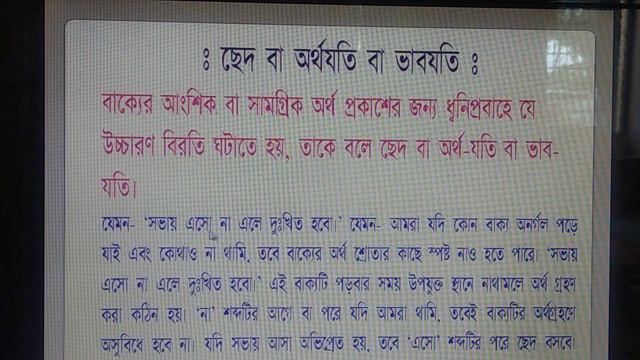 : ছেদ বা অর্থযতি বা ভাবযতি :
বাক্যের আংশিক বা সামগ্রিক অর্থ প্রকাশের জন্য ধ্বনিপ্রবাহে যে
উচ্চারণ বিরতি ঘটাতে হয়, তাকে বলে ছেদ বা অর্থ-যতি বা ভাব-
যতি।
যেমন- 'সভায় এসো না এলে দুঃখিত হবো।' যেমন- আমরা যদি কোন বাক্য অনর্গল পড়ে
যাই এবং কোথাও না থামি, তবে বাক্যের অর্থ শ্রোতার কাছে স্পষ্ট নাও হতে পারে। 'সভায়
এসো না এলে দুঃখিত হবো।' এই বাক্যটি পড়বার সময় উপযুক্ত স্থানে নাথামলে অর্থ গ্রহন
করা কঠিন হয়। 'না' শব্দটির আগে বা পরে যদি আমরা থামি, তবেই বাক্যটির অর্থগ্রহণে
অসুবিধে হবে না। যদি সভায় আসা অভিপ্রেত হয়, তবে 'এসো' শব্দটির পরে ছেদ বসবে।